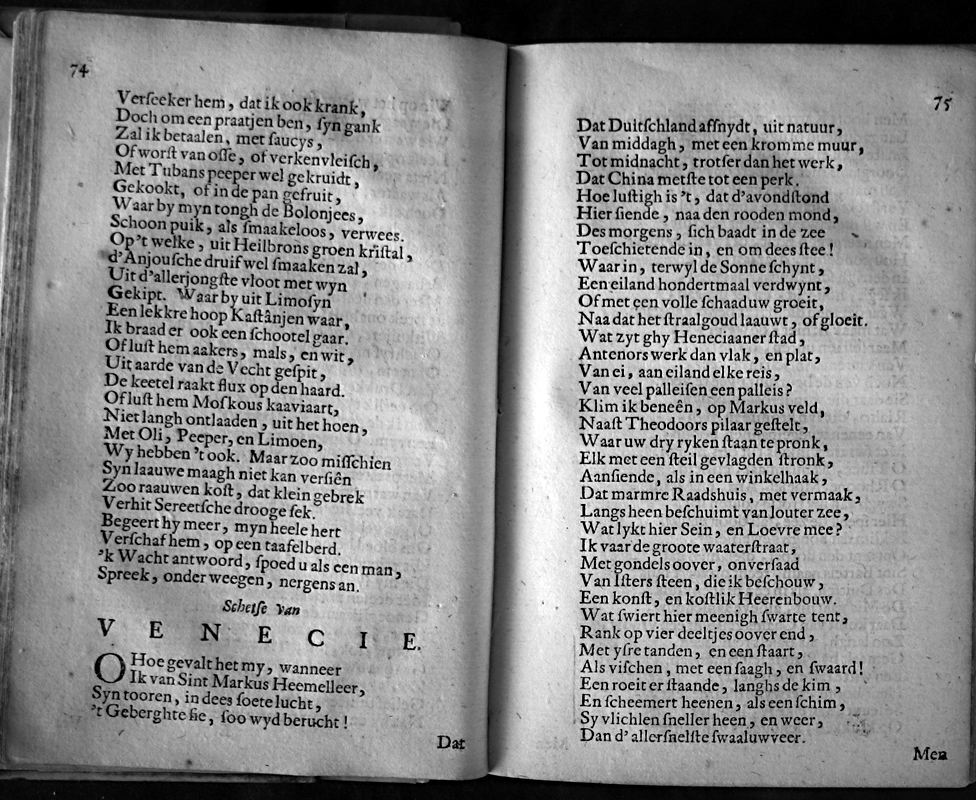 74
Verſeeker hem, dat ik ook krank,
Doch om een praatjen ben, ſyn gank
Zal ik betaalen, met ſaucys,
Of worſt van oſſe, of verkenvleiſch,
Met Tubans peeper wel gekruidt,
Gekookt, of in de pan gefruit,
Waar by myn tongh de Bolonjees,
Schoon puik, als ſmaakeloos, verwees.
Op't welke, uit Heilbrons groen kriſtal,
d'Anjouſche druif wel ſmaaken zal,
Uit d'allerjongſte vloot met wyn
Gekipt. Waar by uit Limoſyn
Een lekkre hoop Kaſtânjen waar,
Ik braad er ook een ſchootel gaar.
Of luſt hem aakers, mals, en wit,
Uit aarde van de Vecht geſpit,
De keetel raakt flux op den haard.
Of luſt hem Moſkous kaaviaart,
Niet langh ontlaaden, uit het hoen,
Met Oli, Peeper, en Limoen,
Wy hebben 't ook. Maar zoo miſſchien
Syn laauwe maagh niet kan verſiên
Zoo raauwen koſt, dat klein gebrek
Verhit Sereetſche drooge ſek.
Begeert hy meer, myn heele hert
Verſchaf hem, op een taafelberd.
'k Wacht antwoord, ſpoed u als een man,
Spreek, onder weegen, nergens an.
Schetſe van
VENECIE.
O Hoe gevalt het my, wanneer
Ik van Sint Markus Heemelleer,
Syn tooren, in dees ſoete lucht,
't Geberghte ſie, ſoo wyd berucht!
Dat
75
Dat Duitſchland afſnydt, uit natuur,
Van middagh, met een kromme muur,
Tot midnacht, trotſer dan het werk,
Dat China metſte tot een perk.
Hoe luſtigh is 't, dat d'avondſtond
Hier ſiende, naa den rooden mond,
Des morgens, ſich baadt in de zee
Toeſchietende in, en om dees ſtee!
Waar in, terwyl de Sonne ſchynt,
Een eiland hondertmaal verdwynt,
Of met een volle ſchaaduw groeit,
Naa dat het ſtraalgoud laauwt, of gloeit.
Wat zyt ghy Heneciaaner ſtad,
Antenors werk dan vlak, en plat,
Van ei, aan eiland elke reis,
Van veel palleiſen een palleis?
Klim ik beneên, op Markus veld,
Naaſt Theodoors pilaar geſtelt,
Waar uw dry ryken ſtaan te pronk,
Elk met een ſteil gevlagden ſtronk,
Aanſiende, als in een winkelhaak,
Dat marmre Raadshuis, met vermaak,
Langs heen beſchuimt van louter zee,
Wat lykt hier Sein, en Loevre mee?
Ik vaar de groote waaterſtraat,
Met gondels oover, onverſaad
Van Iſters ſteen, die ik beſchouw,
Een konſt, en koſtlik Heerenbouw.
Wat ſwiert hier meenigh ſwarte tent,
Rank op vier deeltjes oover end,
Met yſre tanden, en een ſtaart,
Als viſchen, met een ſaagh, en ſwaard!
Een roeit er ſtaande, langhs de kim,
En ſcheemert heenen, als een ſchim,
Sy vlichlen ſneller heen, en weer,
Dan d'allerſnelſte ſwaaluwveer.
Men